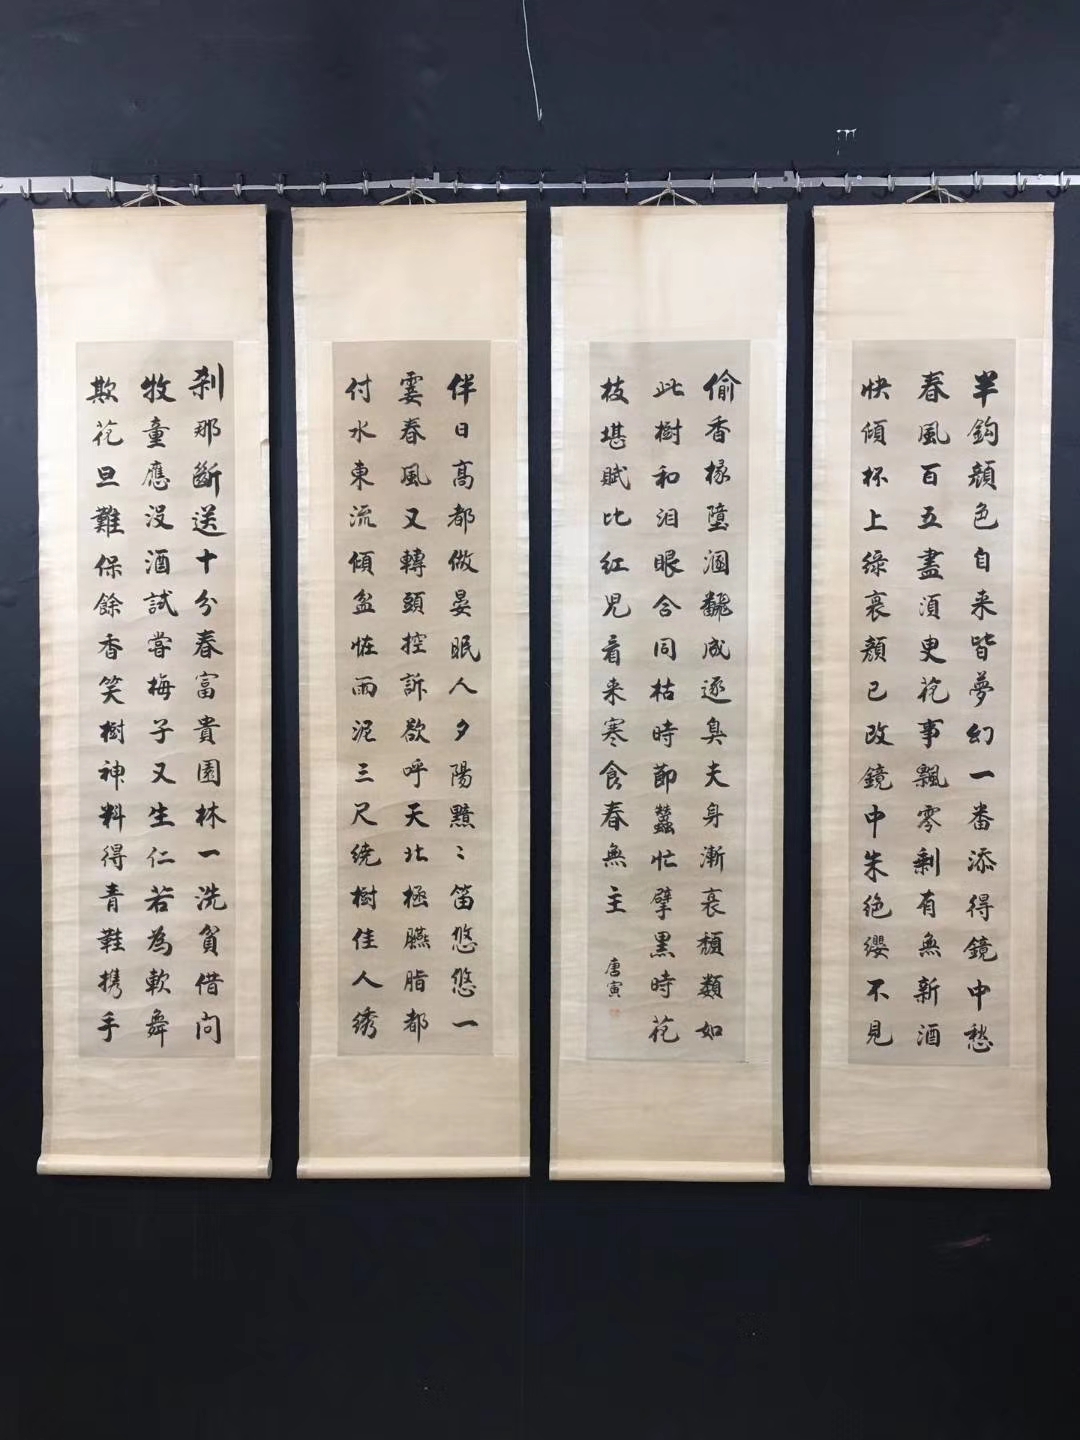 半鈎顔色自来皆夢幻一番添得鏡中愁
春風百五盡須臾花事飄零剩有無新酒
快傾杯上綠衰顔已改鏡中朱絶纓不見
偷香椽墮溷飜成逐臭夫身漸衰頽類如
此樹和泪眼合同枯時節蠶忙擘黒時花
枝堪賦比紅児看来寒食春無主
唐寅
伴日高都做晏眠人夕陽黯〻笛悠悠一
霎春風又轉頭控訴欲呼天北極臙脂都
付水東流傾盆怪雨泥三尺繞樹佳人绣
刹那斷送十分春富貴園林一洗貧借問
牧童應没酒試嘗梅子又生仁若為軟舞
欺花旦難保餘香笑樹神料得青鞋携手